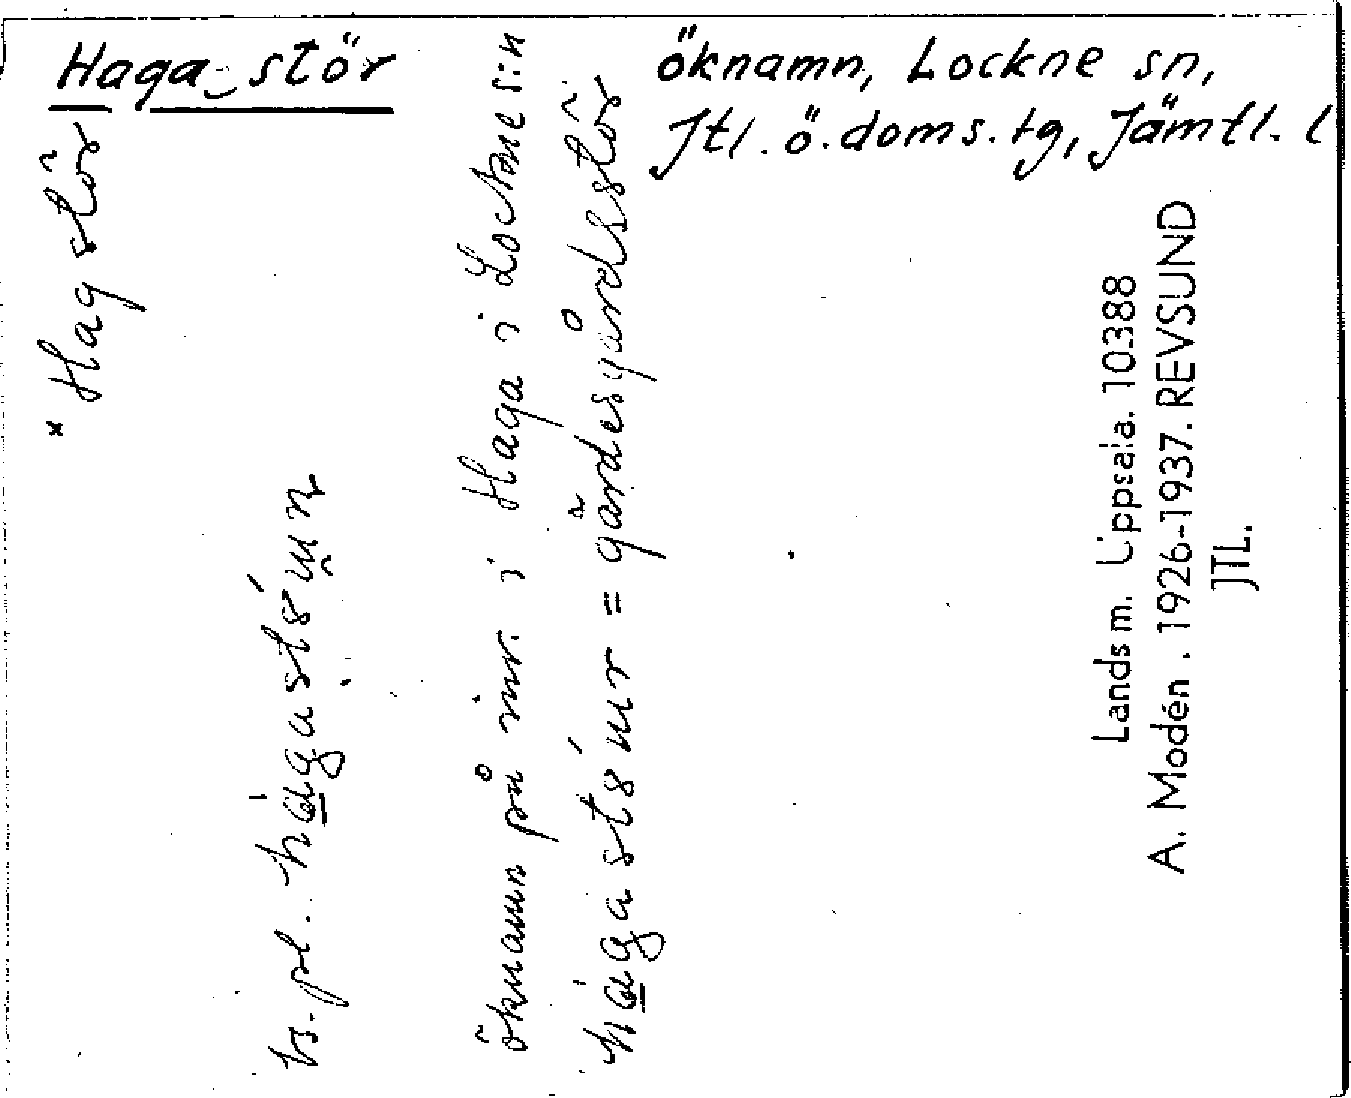 Haga-stör
öknamn, Lockne sn,
Jtl. ö. doms. tg, Jämtl. l
* Hagstör
b. pl.
öknamn på inv. i Haga i Lockne s:n
= gärdesgårdsstör
Landsm. Uppsala. 10388
A. Modén. 1926-1937. REVSUND
JTL.